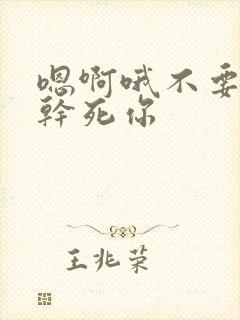 嗯啊哦不要
幹死你
王兆荣